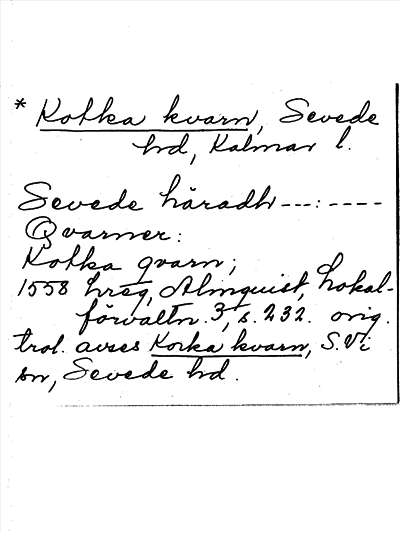 * Kotka kvarn, Sevede
hd, Kalmar l.
Sevede häradh ---:----
Qvarner:
Kotka qvarn;
1558 hreg, Almquist, Lokal-
förvaltn. 3, s. 232. orig.
trol. avses Korka kvarn, S. Vi
sn, Sevede hd.